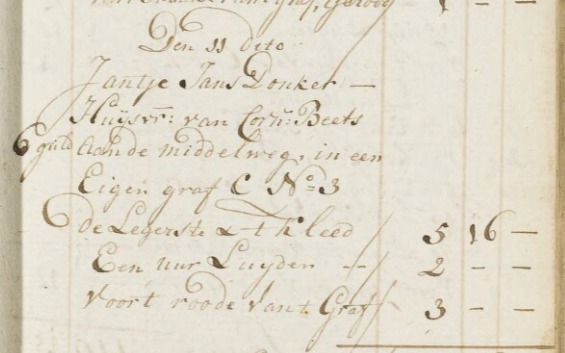 1 - -
Den 11 dito
Jantje Jans Donker —
Huijsvr: van Corn: Beets
6 guld aande middelweg, in een
Eigen graf C No 3
de Legerste & t k leed 5 16 —
Een uur Luyden -- 2 - -
voort roode van t Graf 3 - -